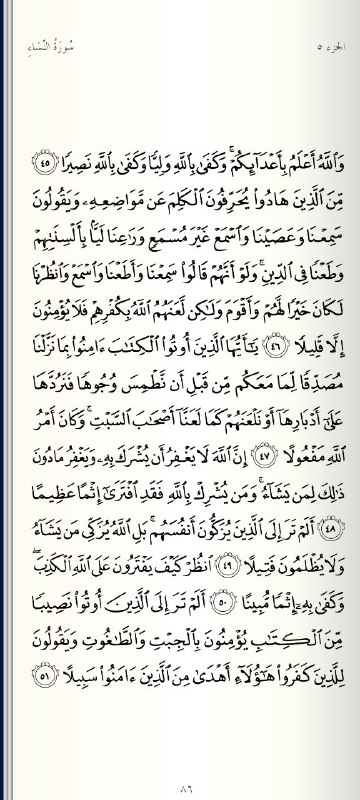 الجزء ٥ سُورَةُ النِّسَاءِ
وَاللَّهُ أَعْلَمُ بِأَعْدَائِكُمْ ۚ وَكَفَىٰ بِاللَّهِ وَلِيًّا وَكَفَىٰ بِاللَّهِ نَصِيرًا ٤٥
مِّنَ الَّذِينَ هَادُوا يُحَرِّفُونَ الْكَلِمَ عَن مَّوَاضِعِهِ وَيَقُولُونَ
سَمِعْنَا وَعَصَيْنَا وَاسْمَعْ غَيْرَ مُسْمَعٍ وَرَاعِنَا لَيًّا بِأَلْسِنَتِهِمْ
وَطَعْنًا فِي الدِّينِ ۚ وَلَوْ أَنَّهُمْ قَالُوا سَمِعْنَا وَأَطَعْنَا وَاسْمَعْ وَانظُرْنَا
لَكَانَ خَيْرًا لَّهُمْ وَأَقْوَمَ وَلَٰكِن لَّعَنَهُمُ اللَّهُ بِكُفْرِهِمْ فَلَا يُؤْمِنُونَ
إِلَّا قَلِيلًا ٤٦ يَا أَيُّهَا الَّذِينَ أُوتُوا الْكِتَٰبَ ءَامِنُوا بِمَا نَزَّلْنَا
مُصَدِّقًا لِّمَا مَعَكُم مِّن قَبْلِ أَن نَّطْمِسَ وُجُوهًا فَنَرُدَّهَا
عَلَىٰ أَدْبَارِهَا أَوْ نَلْعَنَهُمْ كَمَا لَعَنَّا أَصْحَٰبَ السَّبْتِ ۚ وَكَانَ أَمْرُ
اللَّهِ مَفْعُولًا ٤٧ إِنَّ اللَّهَ لَا يَغْفِرُ أَن يُشْرَكَ بِهِ وَيَغْفِرُ مَا دُونَ
ذَٰلِكَ لِمَن يَشَاءُ ۚ وَمَن يُشْرِكْ بِاللَّهِ فَقَدِ افْتَرَىٰ إِثْمًا عَظِيمًا
٤٨ أَلَمْ تَرَ إِلَى الَّذِينَ يُزَكُّونَ أَنفُسَهُم ۚ بَلِ اللَّهُ يُزَكِّي مَن يَشَاءُ
وَلَا يُظْلَمُونَ فَتِيلًا ٤٩ انظُرْ كَيْفَ يَفْتَرُونَ عَلَى اللَّهِ الْكَذِبَ ۖ
وَكَفَىٰ بِهِ إِثْمًا مُّبِينًا ٥٠ أَلَمْ تَرَ إِلَى الَّذِينَ أُوتُوا نَصِيبًا
مِّنَ الْكِتَٰبِ يُؤْمِنُونَ بِالْجِبْتِ وَالطَّٰغُوتِ وَيَقُولُونَ
لِلَّذِينَ كَفَرُوا هَٰؤُلَاءِ أَهْدَىٰ مِنَ الَّذِينَ ءَامَنُوا سَبِيلًا ٥١
٨٦